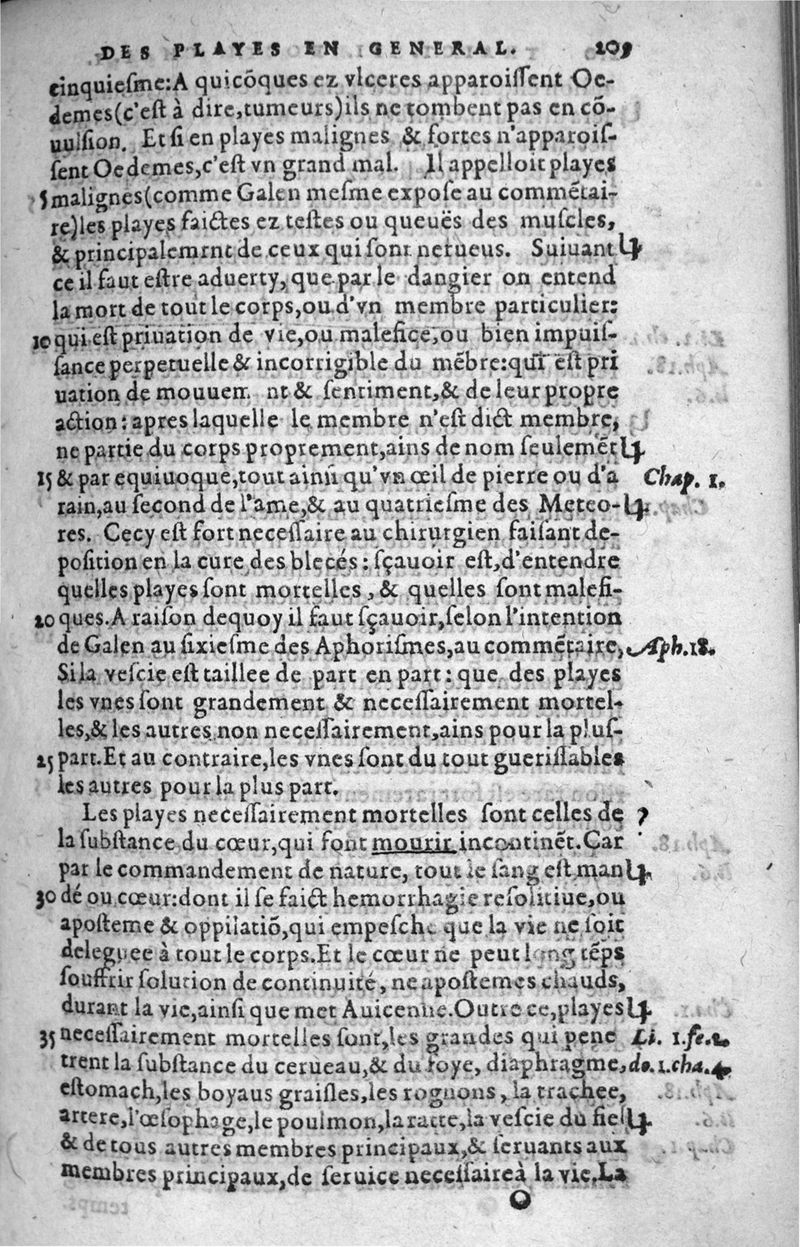 DES PLAYES EN GENERAL. 209
cinquieſme:A quicõques ez vlceres apparoiſſent Oe-
demes(c'eſt à dire,tumeurs)ils ne tombent pas en cõ-
uulſion. Et ſi en playes malignes & fortes n'apparoiſ-
ſent Oedemes,c'eſt vn grand mal. Il appelloit playes
5 malignes(comme Galen meſme expoſe au commẽtai-
re)les playes faictes ez teſtes ou queuës des muſcles,
& principalemrnt de ceux qui ſont nerueus. Suiuant
ce il faut eſtre aduerty, que par le dangier on entend
la mort de tout le corps,ou d'vn membre particulier:
10 qui eſt priuation de vie,ou malefice,ou bien impuiſ-
ſance perpetuelle & incorrigible du mẽbre:qui eſt pri
uation de mouuem nt & ſentiment,& de leur propre
action: apres laquelle le membre n'eſt dict membre,
ne partie du corps proprement,ains de nom ſeulemẽt
15 & par equiuoque,tout ainſi qu'vn œil de pierre ou d'a Chap. 1.
rain,au ſecond de l'ame,& au quatrieſme des Meteo-
res. Cecy eſt fort neceſſaire au chirurgien faiſant de-
poſition en la cure des blecés: ſçauoir eſt,d'entendre
quelles playes ſont mortelles, & quelles ſont malefi-
20 ques.A raiſon dequoy il faut ſçauoir,ſelon l'intention
de Galen au ſixieſme des Aphoriſmes,au commẽtaire, Aph.18.
Si la veſcie eſt taillee de part en part: que des playes
les vnes ſont grandement & neceſſairement mortel-
les,& les autres non neceſſairement,ains pour la pluſ-
25 part.Et au contraire,les vnes ſont du tout gueriſſables
les autres pour la plus part.
Les playes neceſſairement mortelles ſont celles de ?
la ſubſtance du cœur,qui font mourir incontinẽt.Car
par le commandement de nature, tout le ſang eſt man
30 dé ou cœur:dont il ſe faict hemorrhagie reſolutiue,ou
apoſteme & oppilatiõ,qui empeſche que la vie ne ſoit
deleguee à tout le corps.Et le cœur ne peut long tẽps
ſouffrir ſolution de continuité, ne apoſtemes chauds,
durant la vie,ainſi que met Auicenne.Outre ce,playes
35 neceſſairement mortelles ſont,les grandes qui pene Li. 1.fe.
trent la ſubſtance du cerueau,& du foye, diaphragme, do.1.cha.4.
eſtomach,les boyaus graiſles,les rognons, la trachee,
artere,l'œſophage,le poulmon,la ratte,la veſcie du fiel
& de tous autres membres principaux,& ſeruants aux
membres principaux,de ſeruice neceſſaireà la vie.La
O